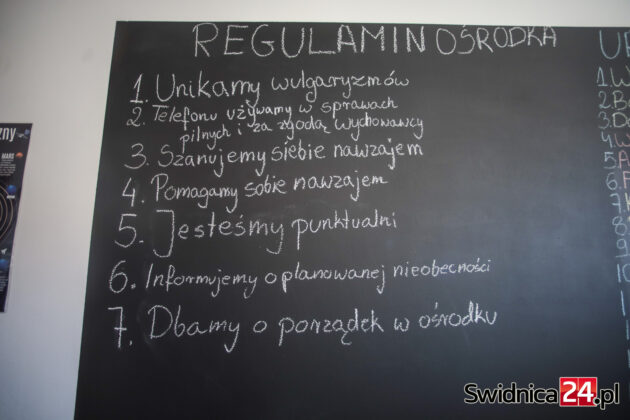 REGULAMIN OŚRODKA
1. Unikamy wulgaryzmów
2. Telefonu używamy w sprawach
pilnych i za zgodą wychowawcy
3. Szanujemy siebie nawzajem
4. Pomagamy sobie nawzajem
5. Jesteśmy punktualni
6. Informujemy o planowanej nieobecności
7. Dbamy o porządek w ośrodku
ZNY
MARS
Swidnica24.pl